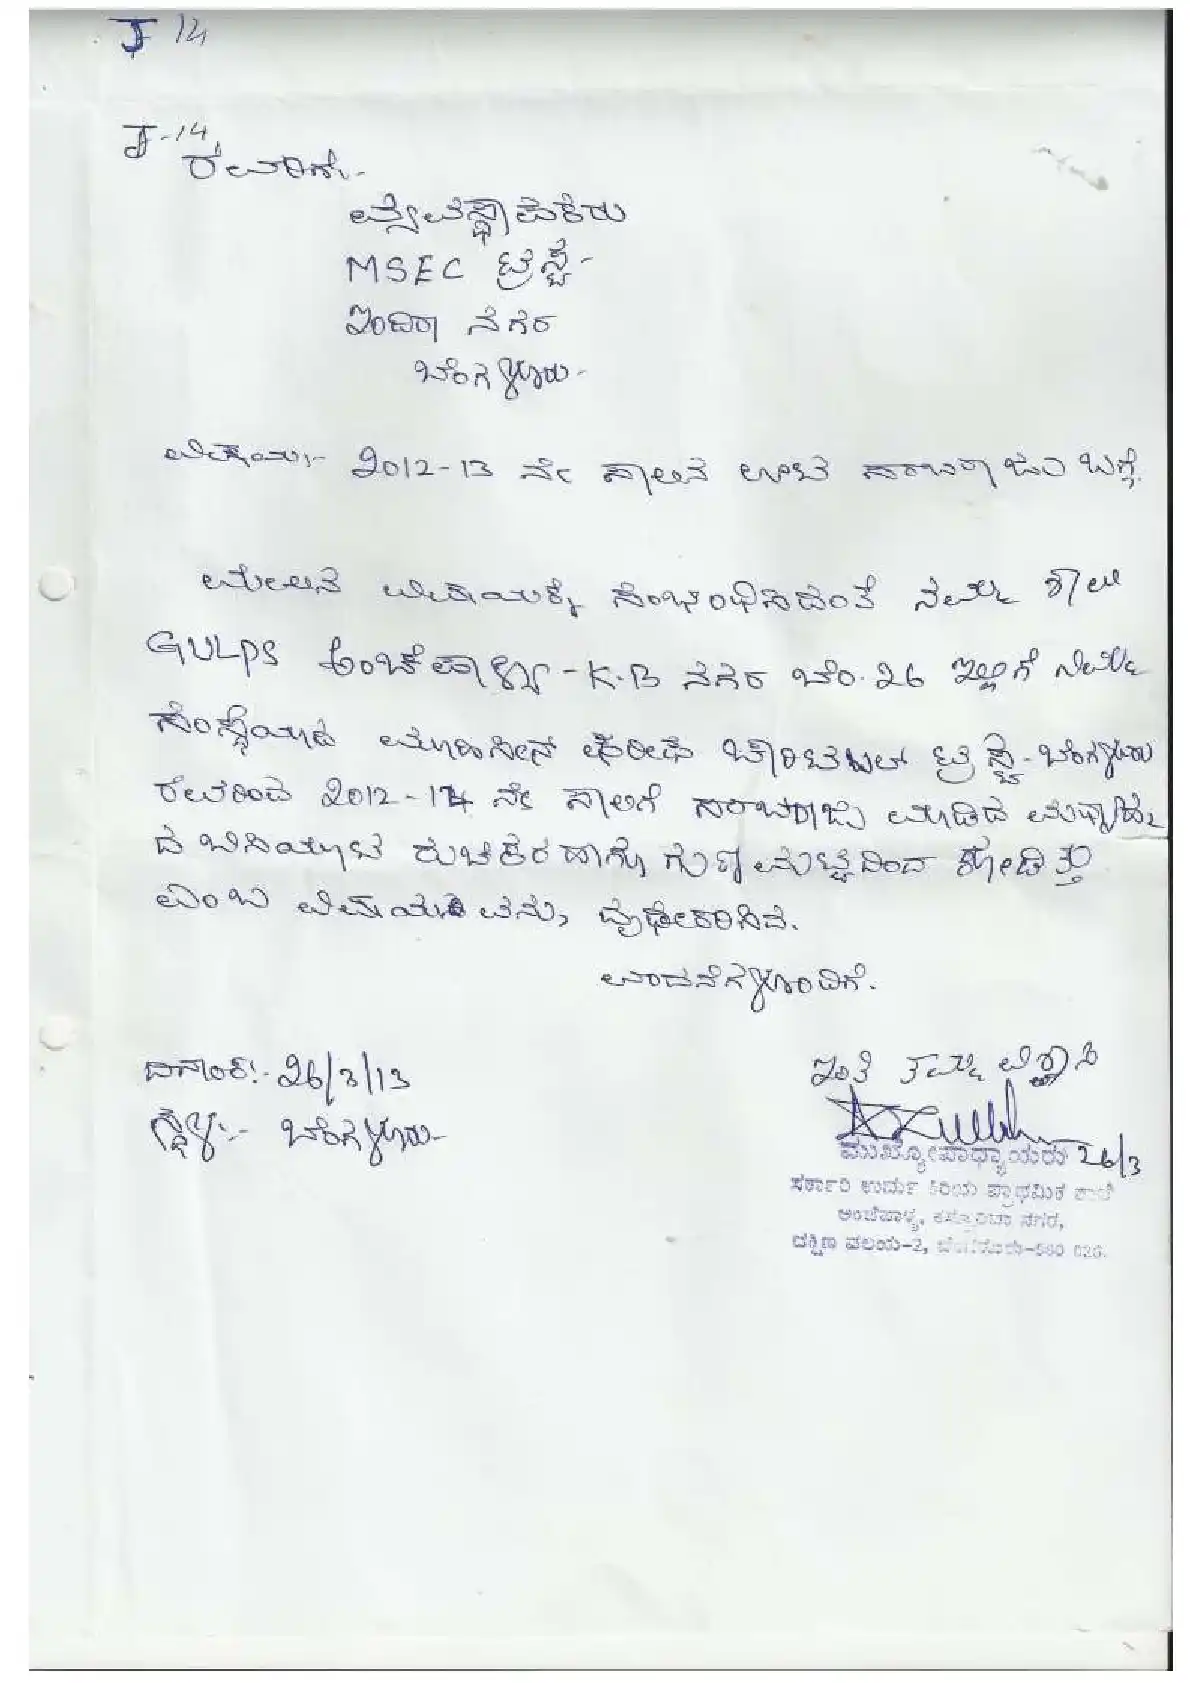 J 14
J-14
ರವರಿಗೆ,
ವ್ಯವಸ್ಥಾಪಕರು
MSEC ಟ್ರಸ್ಟ್-
ಇಂದಿರಾ ನಗರ
ಬೆಂಗಳೂರು-
ವಿಷಯ:- 2012-13 ನೇ ಸಾಲಿನ ಊಟ ಸರಬರಾಜು ಬಗ್ಗೆ.
ಮೇಲಿನ ವಿಷಯಕ್ಕೆ ಸಂಭಂಧಿಸಿದಂತೆ ನಮ್ಮ ಶಾಲೆ
GULPS ಅಂಚೆಪಾಳ್ಯ - K.B ನಗರ ಬೆಂ. 26 ಇಲ್ಲಿಗೆ ನಿಮ್ಮ
ಸಂಸ್ಥೆಯಾದ ಮೊಹಸೀನ್ ಷರೀಫ್ ಚಾರಿಟಬಲ್ ಟ್ರಸ್ಟ್-ಬೆಂಗಳೂರು
ರವರಿಂದ 2012-14 ನೇ ಸಾಲಿಗೆ ಸರಬರಾಜು ಮಾಡಿದ ಮಧ್ಯಾಹ್ನ
ದ ಬಿಸಿಯೂಟ ರುಚಿಕರ ಹಾಗೂ ಗುಣಮಟ್ಟದಿಂದ ಕೂಡಿತ್ತು
ಎಂಬ ವಿಷಯವನ್ನು ಧೃಢೀಕರಿಸಿದೆ.
ವಂದನೆಗಳೊಂದಿಗೆ.
ದಿನಾಂಕ:- 26/3/13
ಇಂತಿ ತಮ್ಮ ವಿಶ್ವಾಸಿ
ಸ್ಥಳ:- ಬೆಂಗಳೂರು-
ಮುಖ್ಯೋಪಾಧ್ಯಾಯರು 26/3
ಸರ್ಕಾರಿ ಉರ್ದು ಕಿರಿಯ ಪ್ರಾಥಮಿಕ ಶಾಲೆ
ಅಂಚೆಪಾಳ್ಯ, ಕಸ್ತೂರಿಬಾ ನಗರ,
ದಕ್ಷಿಣ ವಲಯ-2, ಬೆಂಗಳೂರು-560 026.